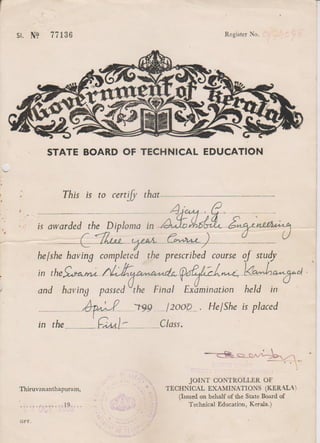 Sl. No 77136 Register No.
Government of Kerala
STATE BOARD OF TECHNICAL EDUCATION
This is to certify that
Ajay. G.
is awarded the Diploma in Automobile Engineering
( Three year Course )
he/she having completed the prescribed course of study
in the Swami Nithyananda Polytechnic, Kanhangad.
and having passed the Final Examination held in
April 199 /2000. He/She is placed
in the First Class.
JOINT CONTROLLER OF
Thiruvananthapuram, TECHNICAL EXAMINATIONS (KERALA)
(Issued on behalf of the State Board of
19 Technical Education, Kerala.)
GPT.